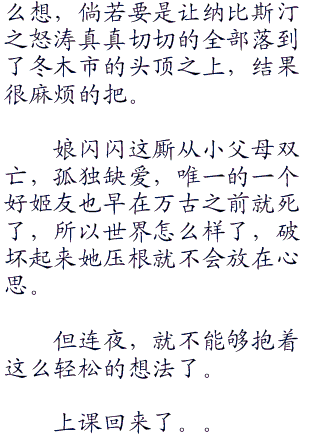 么想，倘若要是让纳比斯汀
之怒涛真真切切的全部落到
了冬木市的头顶之上，结果
很麻烦的把。
娘闪闪这厮从小父母双
亡，孤独缺爱，唯一的一个
好姬友也早在万古之前就死
了，所以世界怎么样了，破
坏起来她压根就不会放在心
思。
但连夜，就不能够抱着
这么轻松的想法了。
上课回来了。。